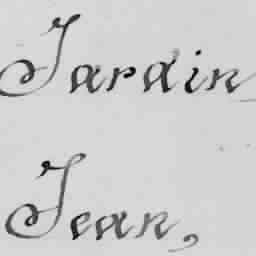 Jardin
Jean,